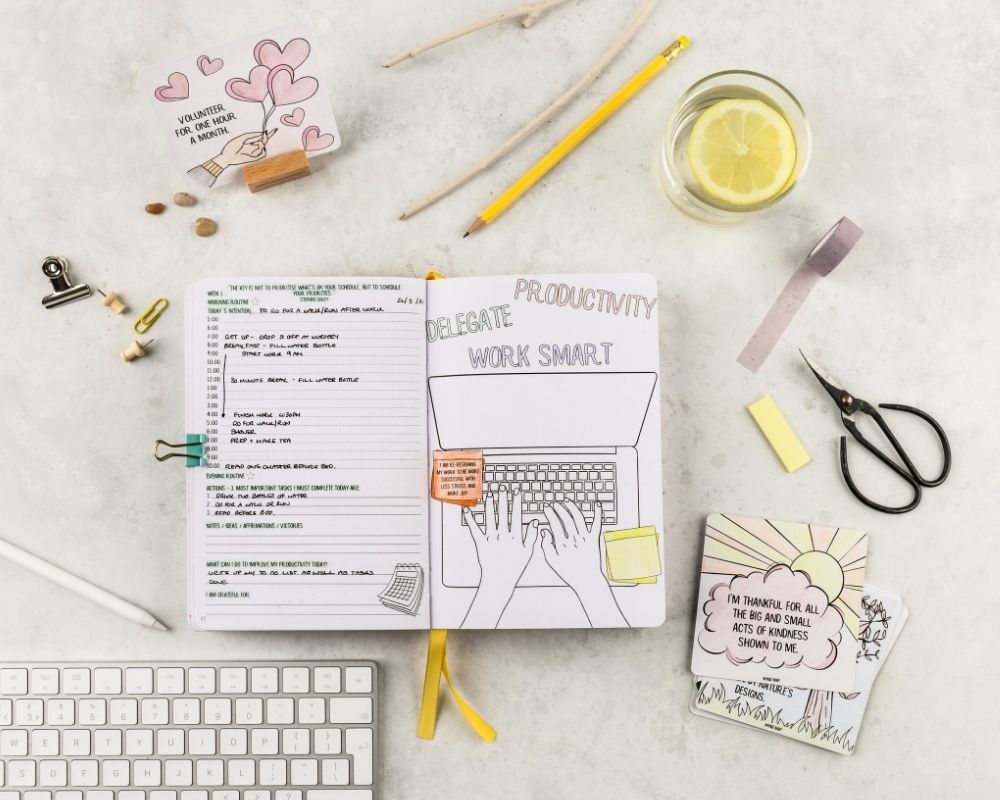 VOLUNTEER
FOR ONE HOUR
A MONTH.
"THE KEY IS NOT TO PRIORITISE WHAT'S ON YOUR SCHEDULE, BUT TO SCHEDULE
YOUR PRIORITIES."
STEPHEN COVEY
WEEK 1
MORNING ROUTINE
TODAY'S INTENTION TO GO FOR A WALK/RUN AFTER WORK
5:00
6:00
7:00 GET UP - DROP S OFF AT NURSERY
8:00 BREAKFAST - FILL WATER BOTTLE
9:00 START WORK 9AM
10:00
11:00
12:00 30 MINUTE BREAK - FILL WATER BOTTLE
1:00
2:00
3:00
4:00 FINISH WORK 4:30PM
5:00 GO FOR WALK/RUN
6:00 SHOWER
7:00 PREP & MAKE TEA
8:00
9:00
10:00 READ ONE CHAPTER BEFORE BED.
EVENING ROUTINE
ACTIONS - 3 MOST IMPORTANT TASKS I MUST COMPLETE TODAY ARE:
1 DRINK TWO BOTTLES OF WATER
2 GO FOR A WALK OR RUN
3 READ BEFORE BED.
NOTES / IDEAS / AFFIRMATIONS / VICTORIES
WHAT CAN I DO TO IMPROVE MY PRODUCTIVITY TODAY?
WRITE UP MY TO DO LIST AS WELL AS TASKS
DONE.
I AM GRATEFUL FOR
PRODUCTIVITY
DELEGATE
WORK SMART
I AM RE-DESIGNING
MY WORK TO BE MORE
SUCCESSFUL WITH
LESS STRESS AND
MORE JOY.
I'M THANKFUL FOR ALL
THE BIG AND SMALL
ACTS OF KINDNESS
SHOWN TO ME.
BY NATURE'S
DESIGNS.
W E R T Y U I O P
S D F G H J K L